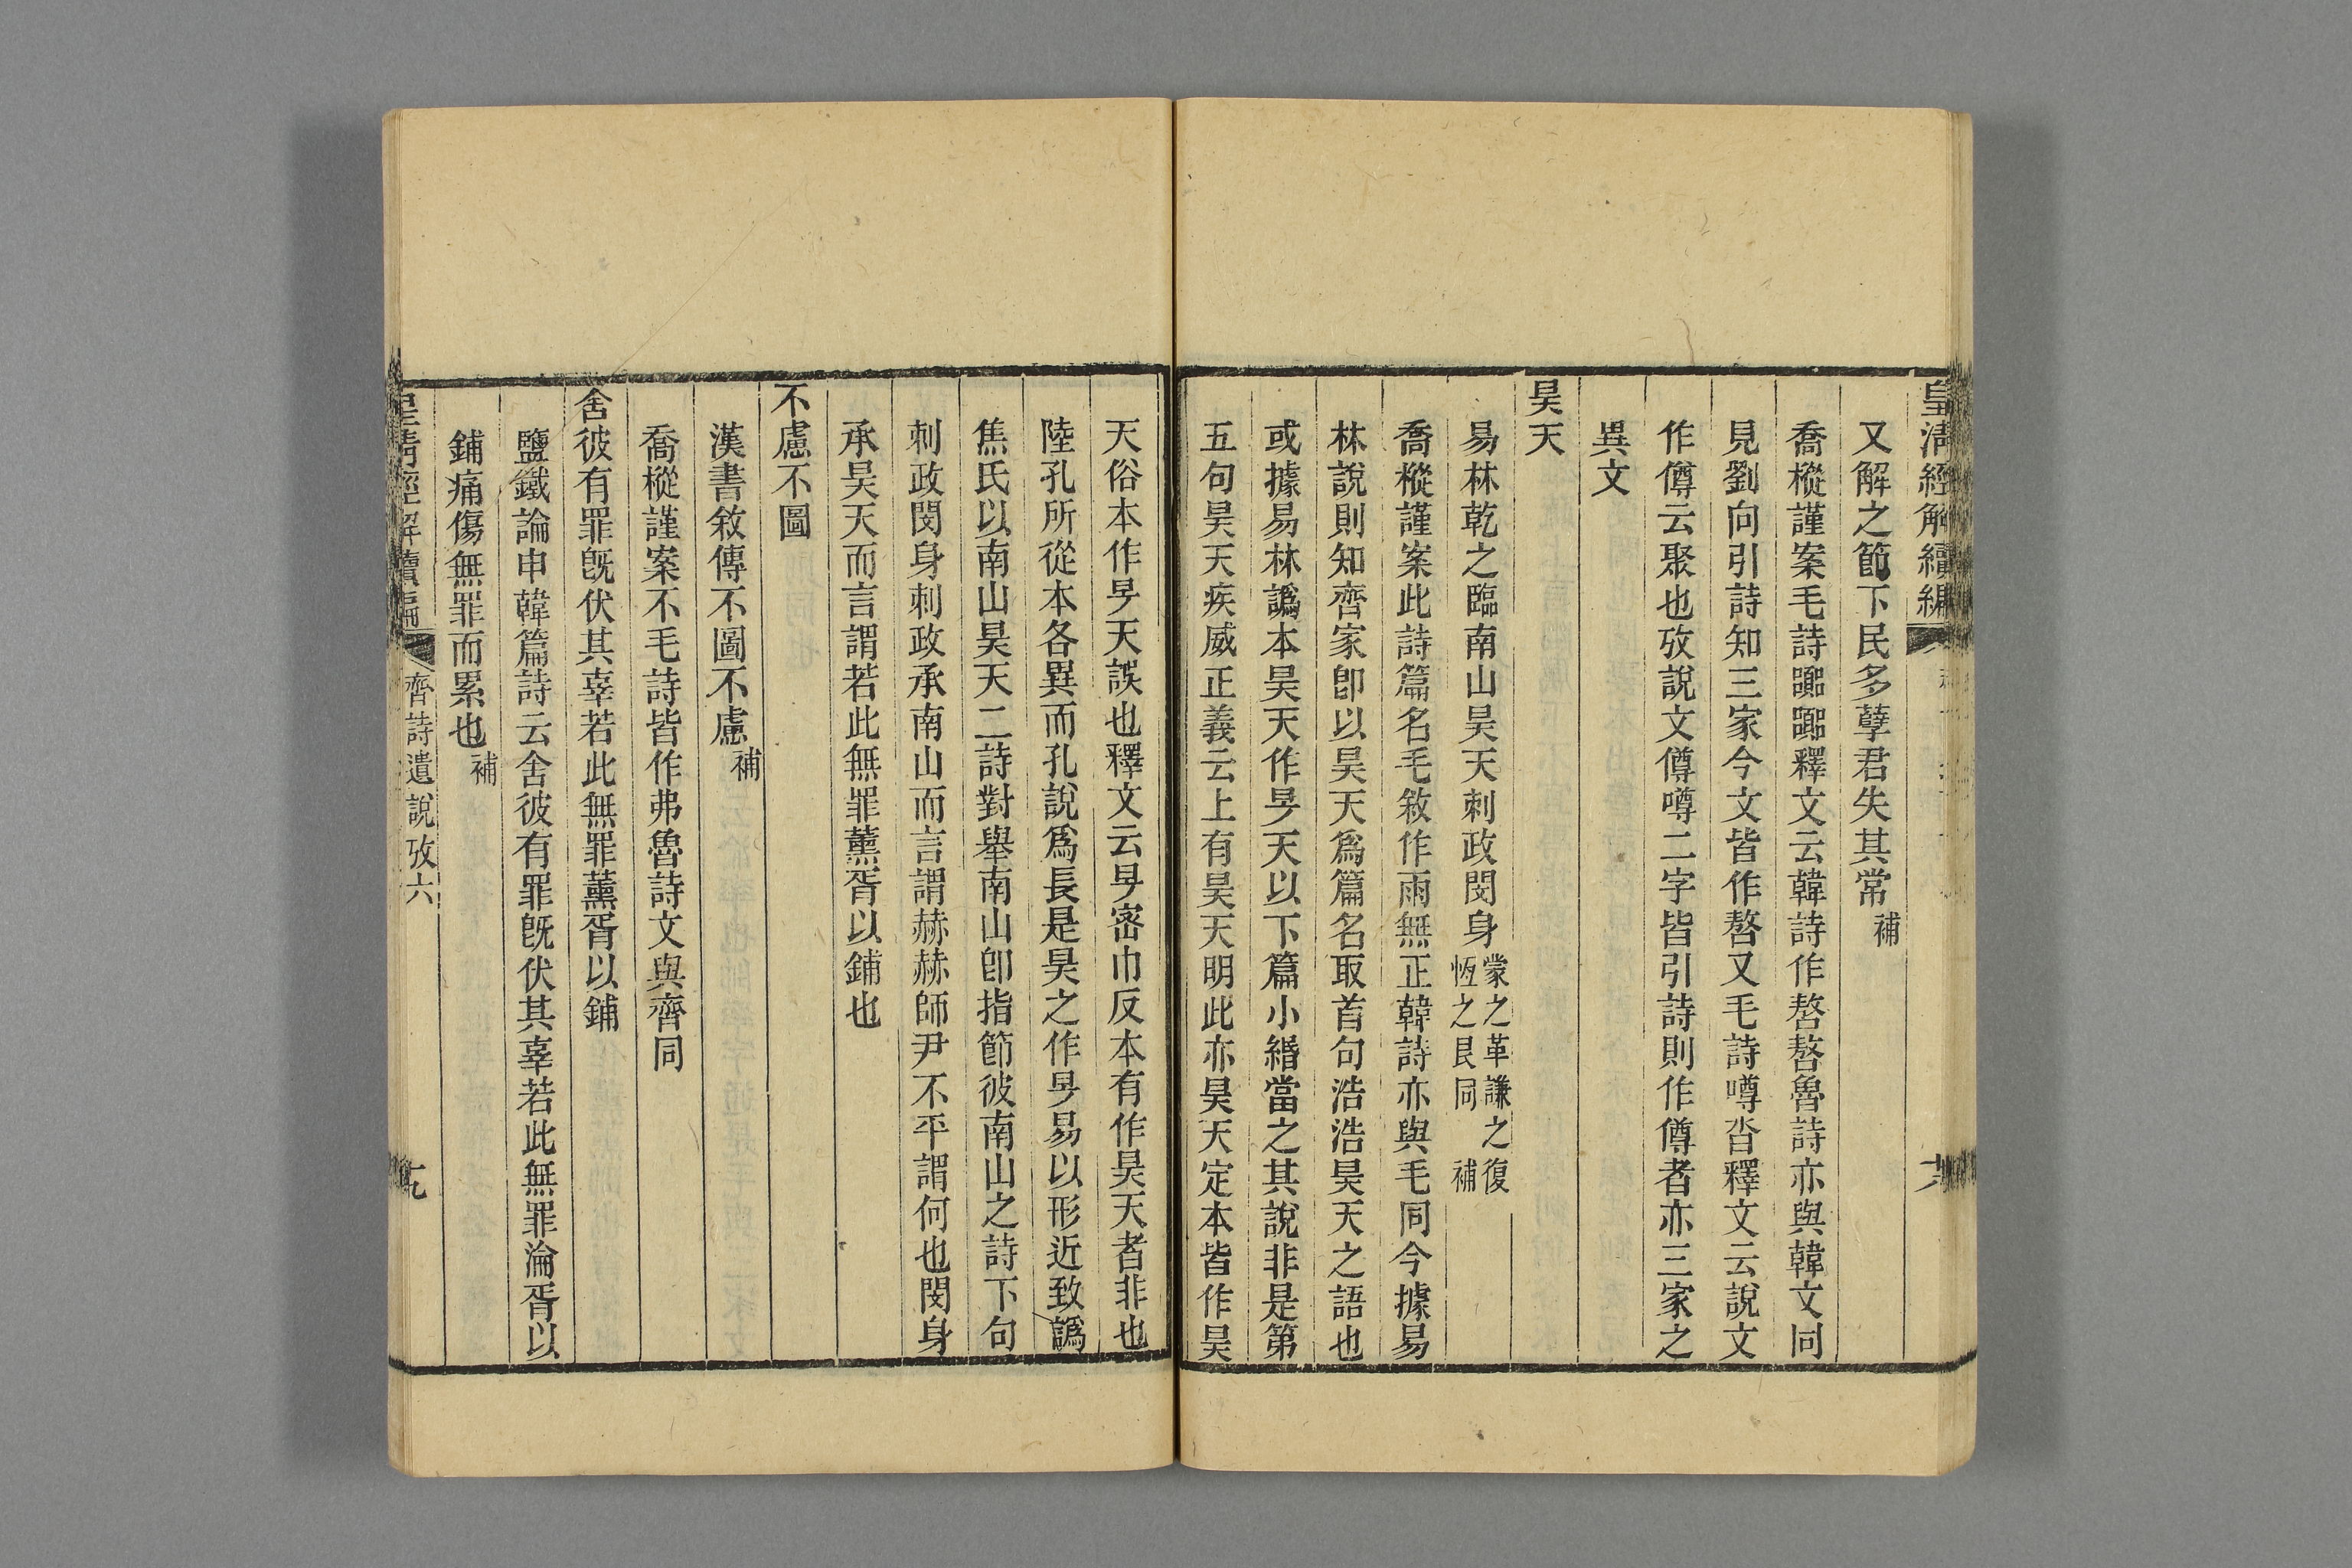 皇清經解續編
又解之節下民多孽君失其常補
喬樅謹案毛詩躑躑釋文云韓詩作嗸嗸魯詩亦與韓文同
見劉向引詩知三家今文皆作嗸又毛詩噂沓釋文云說文
作僔云聚也攷說文僔噂二字皆引詩則作僔者亦三家之
異文
昊天
易林乾之臨南山昊天刺政閔身蒙之革謙之復
恆之艮同補
喬樅謹案此詩篇名毛敘作雨無正韓詩亦與毛同今據易
林說則知齊家卽以昊天爲篇名取首句浩浩昊天之語也
或據易林譌本昊天作旻天以下篇小緡當之其說非是第
五句昊天疾威正義云上有昊天明此亦昊天定本皆作昊
天俗本作旻天誤也釋文云旻密巾反本有作昊天者非也
陸孔所從本各異而孔說爲長是昊之作旻易以形近致譌
焦氏以南山昊天二詩對舉南山卽指節彼南山之詩下句
刺政閔身刺政承南山而言謂赫赫師尹不平謂何也閔身
承昊天而言謂若此無罪薰胥以鋪也
不慮不圖
漢書敘傳不圖不慮補
喬樅謹案不毛詩皆作弗魯詩文與齊同
舍彼有罪旣伏其辜若此無罪薰胥以鋪
鹽鐵論申韓篇詩云舍彼有罪旣伏其辜若此無罪淪胥以
鋪痛傷無罪而累也補
皇清經解續編 齊詩遺說攷六